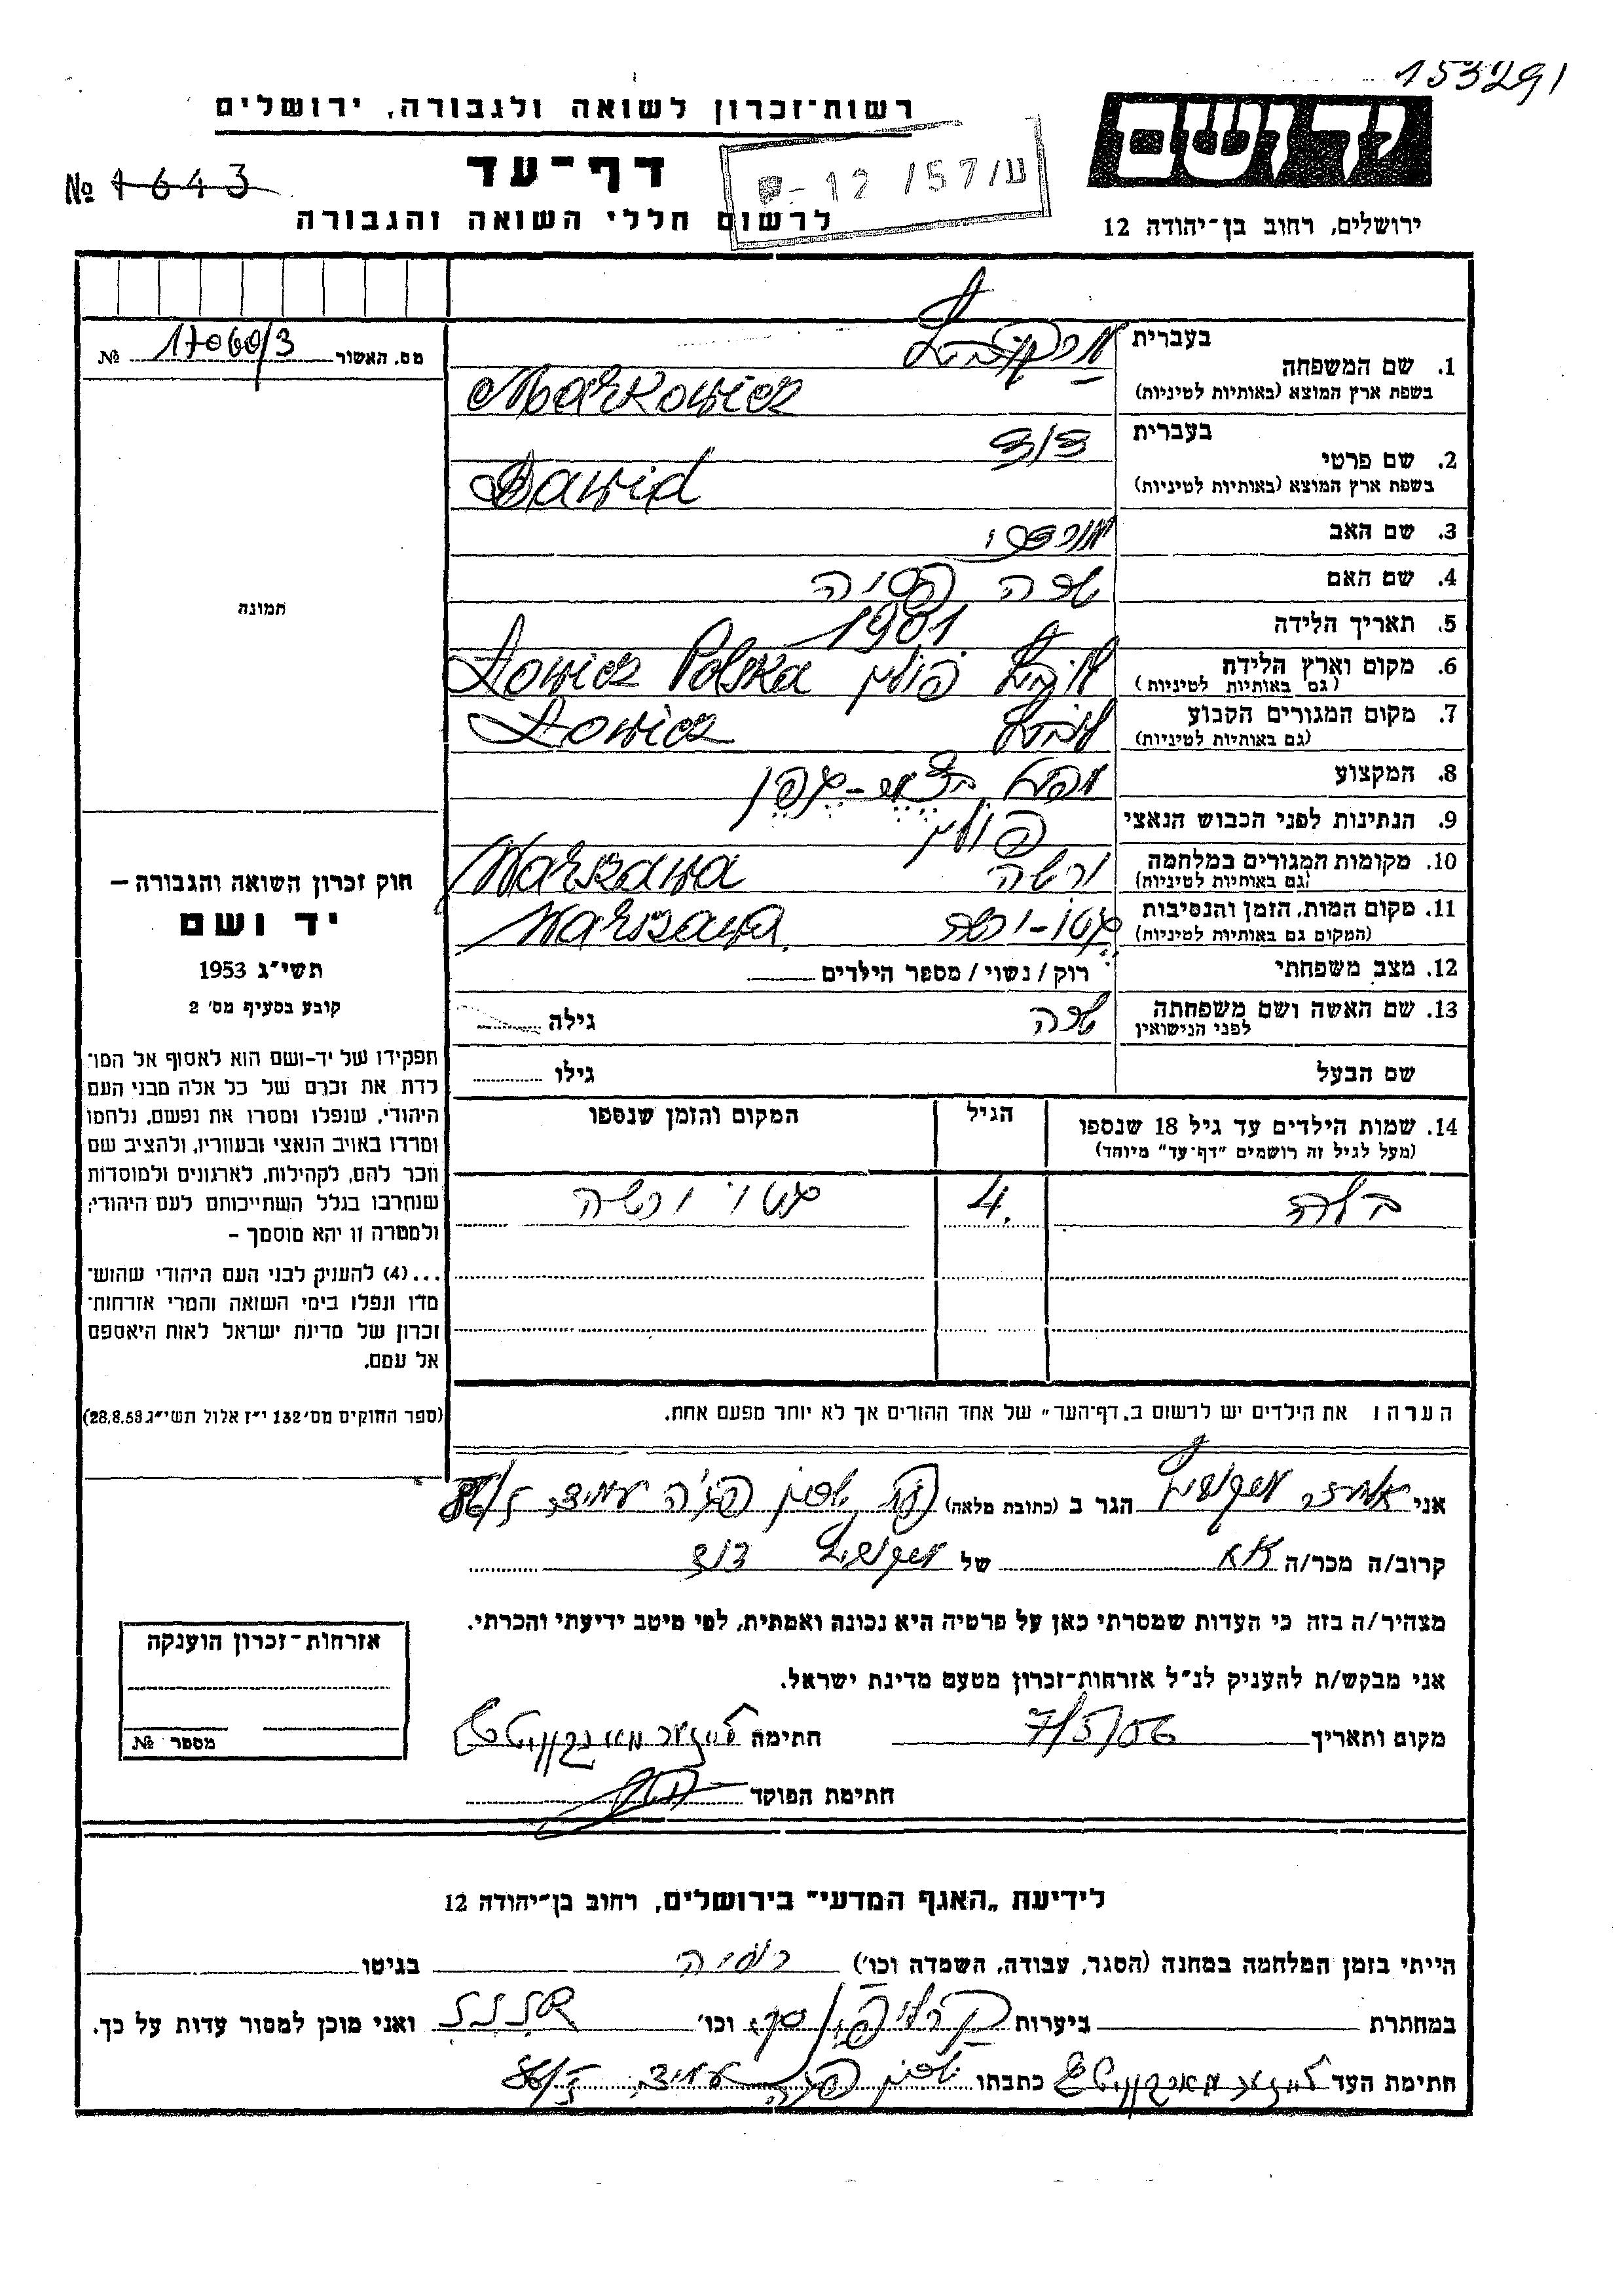 153291
רשות-זכרון לשואה ולגבורה, ירושלים
יד ושם
דף-עד
№ 1643
ע/57/ 12-
לרשום חללי השואה והגבורה
ירושלים, רחוב בן-יהודה 12
מס. האשור 17060/3 №
1. שם המשפחה
בעברית מרקוביץ
בשפת ארץ המוצא (באותיות לטיניות) Markowicz
2. שם פרטי
בעברית דוד
בשפת ארץ המוצא (באותיות לטיניות) Dawid
3. שם האב מורדכי
4. שם האם חיה
5. תאריך הלידה 1901
6. מקום וארץ הלידה לוביץ פולין Łowicz Polska
(גם באותיות לטיניות)
7. מקום המגורים הקבוע לוביץ Łowicz
(גם באותיות לטיניות)
8. המקצוע
9. הנתינות לפני הכבוש הנאצי פולין
10. מקומות המגורים במלחמה ורשה Warszawa
(גם באותיות לטיניות)
11. מקום המות, הזמן והנסיבות גטו-ורשה Warszawa
(המקום גם באותיות לטיניות)
12. מצב משפחתי רוק / נשוי / מספר הילדים
13. שם האשה ושם משפחתה גילה
לפני הנישואין
שם הבעל גילו
14. שמות הילדים עד גיל 18 שנספו הגיל המקום והזמן שנספו
(מעל לגיל זה רושמים "דף-עד" מיוחד)
בלה 4 גטו ורשה
הערה: את הילדים יש לרשום ב"דף-העד" של אחד ההורים אך לא יותר מפעם אחת.
תמונה
חוק זכרון השואה והגבורה –
יד ושם
תשי"ג 1953
קובע בסעיף מס' 2
תפקידו של יד-ושם הוא לאסוף אל המו־
לדת את זכרם של כל אלה מבני העם
היהודי, שנפלו ומסרו את נפשם, נלחמו
ומרדו באויב הנאצי ובעוזריו, ולהציב שם
וזכר להם, לקהילות, לארגונים ולמוסדות
שנחרבו בגלל השתייכותם לעם היהודי;
ולמטרה זו יהא מוסמך –
...(4) להעניק לבני העם היהודי שהוש־
מדו ונפלו בימי השואה והמרי אזרחות־
זכרון של מדינת ישראל לאות היאספם
אל עמם.
(ספר החוקים מס' 132 י"ז אלול תשי"ג 28.8.53)
אני מרקוביץ הגר ב (כתובת מלאה)
קרוב/ה מכר/ה אח של מרקוביץ דוד
מצהיר/ה בזה כי העדות שמסרתי כאן על פרטיה היא נכונה ואמתית, לפי מיטב ידיעתי והכרתי.
אני מבקש/ת להעניק לנ"ל אזרחות-זכרון מטעם מדינת ישראל.
מקום ותאריך 7/5/56 חתימה
חתימת הפוקד
אזרחות-זכרון הוענקה
מספר №
לידיעת "האגף המדעי" בירושלים, רחוב בן-יהודה 12
הייתי בזמן המלחמה במחנה (הסגר, עבודה, השמדה וכו') רוסיה בגיטו
במחתרת ביערות וכו' ואני מוכן למסור עדות על כך.
חתימת העד כתבתו